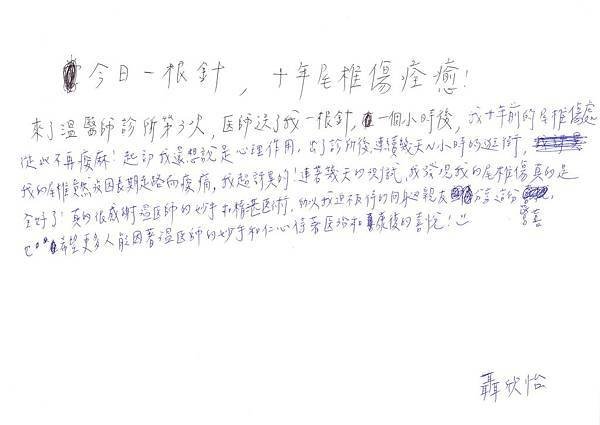 今日一根針,十年尾椎傷痊癒!
來了溫醫師診所第3次,医師送了我一根針,一個小時後,我十年前的尾椎傷處
從此不再痠麻!起初我還想說是心理作用,出了診所後,連續幾天N小時的逛街,
我的尾椎竟然沒因長期走路而痠痛,我超訝異的!連著幾天的測試,我發現我的尾椎真的是
全好了!真的很感謝溫医師的妙手和精甚医術,所以我迫不及待的向身边親友分享這份
驚喜,
也希望更多人能因著溫医師的妙手和仁心得著医治和康復的喜悅!
聶欣怡